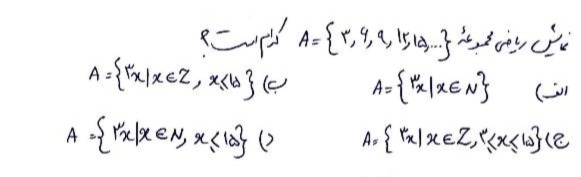 نمایش ریاضی مجموعهٔ A = {۳, ۶, ۹, ۱۲, ۱۵, ...} کدام است؟
الف) A = {۳x | x ∈ N}
ب) A = {۳x | x ∈ Z, x ≤ ۱۵}
ج) A = {۳x | x ∈ Z, ۳ ≤ x ≤ ۱۵}
د) A = {۳x | x ∈ N, x ≤ ۱۵}